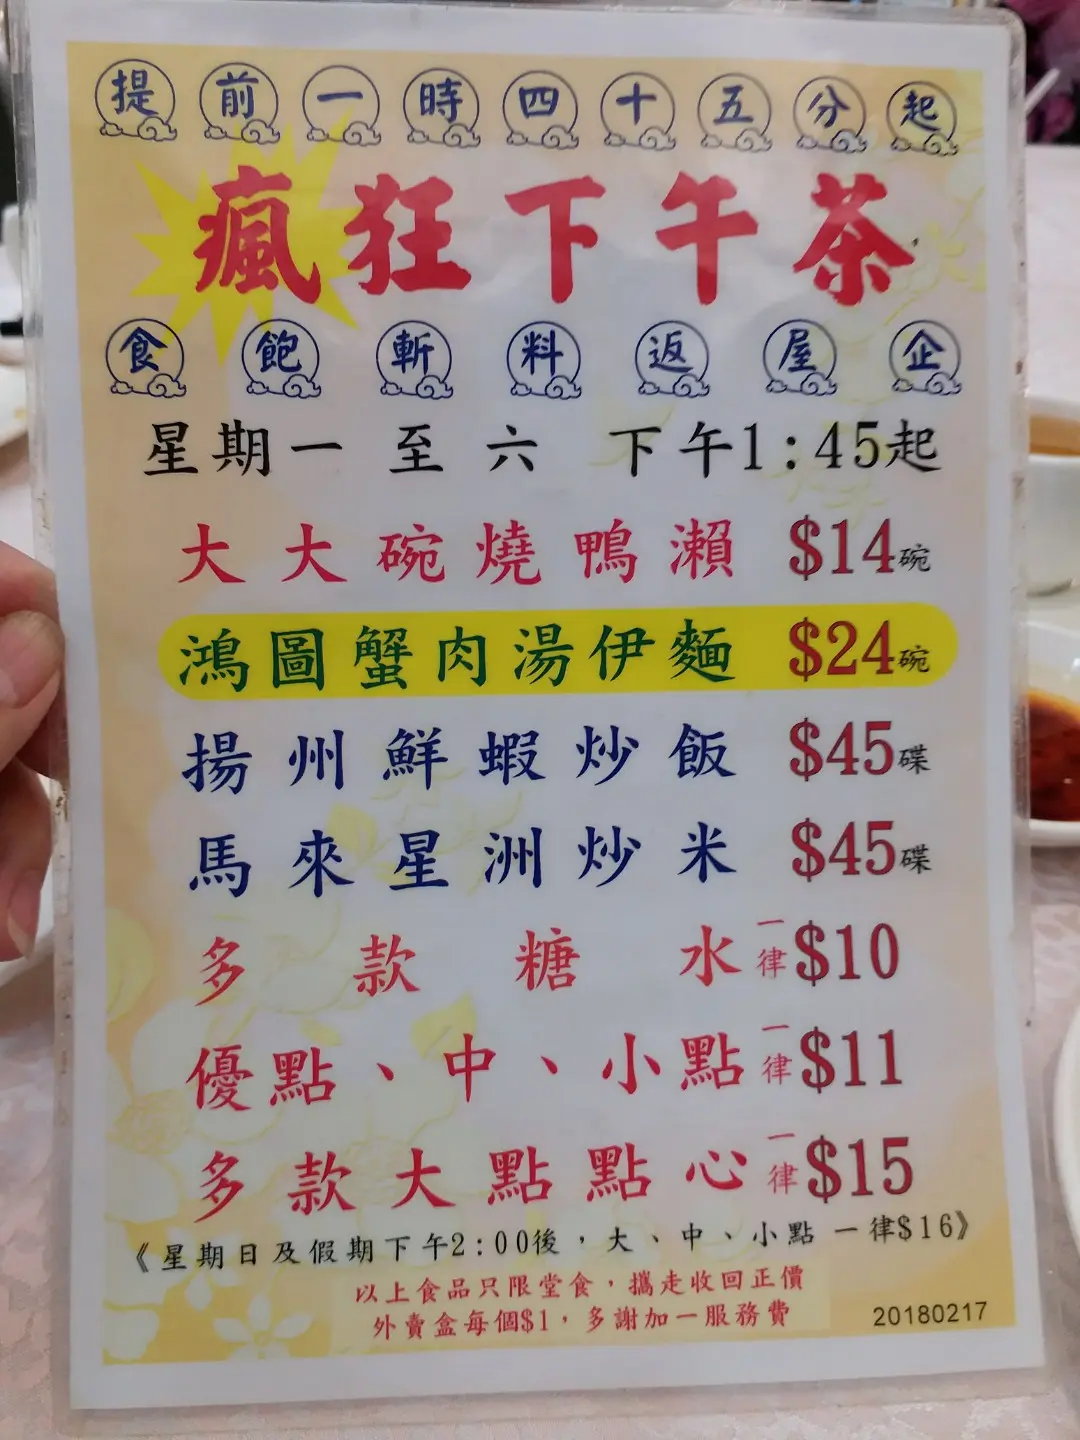 提前一時四十五分起
瘋狂下午茶
食飽斬料返屋企
星期一至六 下午1:45起
大大碗燒鴨瀨 $14碗
鴻圖蟹肉湯伊麵 $24碗
揚州鮮蝦炒飯 $45碟
馬來星洲炒米 $45碟
多款糖水 一律$10
優點、中、小點 一律$11
多款大點點心 一律$15
《星期日及假期下午2:00後，大、中、小點 一律$16》
以上食品只限堂食，攜走收回正價
外賣盒每個$1，多謝加一服務費
20180217